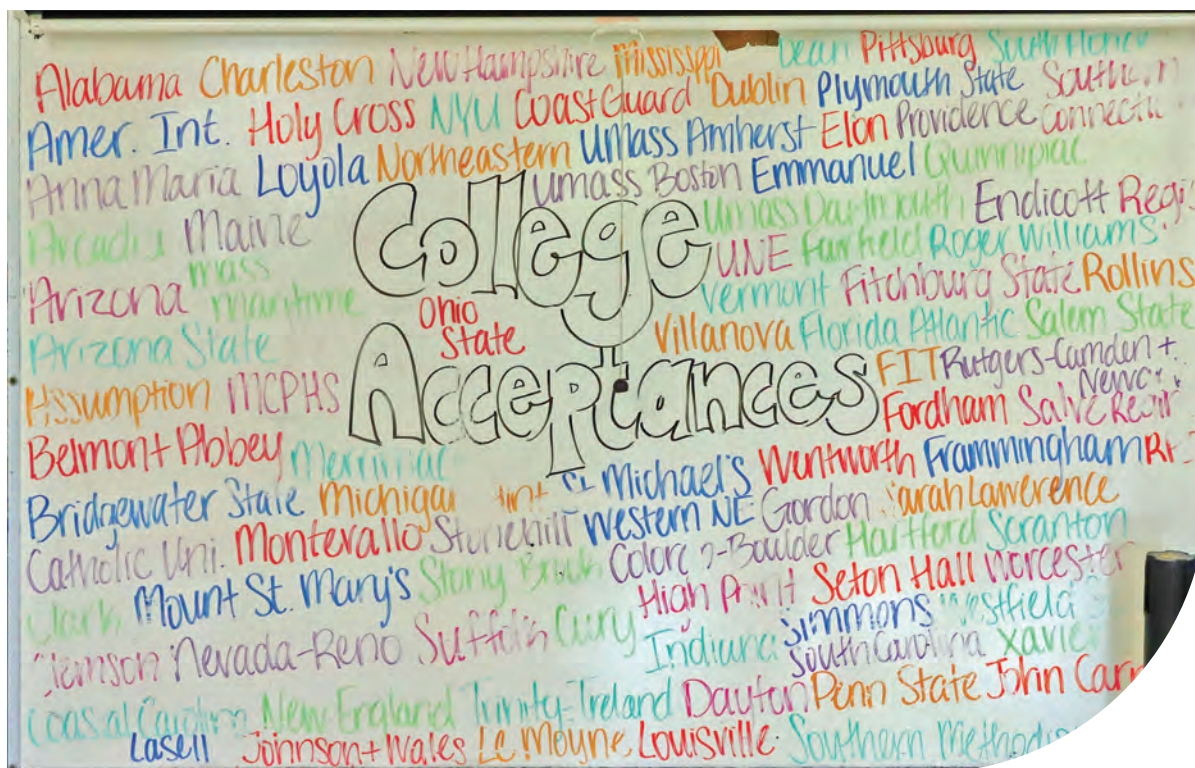 Alabama Charleston New Hampshire Mississippi Dean Pittsburg South
Amer. Int. Holy Cross NYU Coast Guard Dublin Plymouth State Southern
Anna Maria Loyola Northeastern UMass Amherst Elon Providence Connectic
UMass Boston Emmanuel Quinnipiac
Arcadia Maine College UMass Dartmouth Endicott Regi
mass
UNE Fairfield Roger Williams
Arizona maritime Vermont Fitchburg State Rollins
Ohio
Arizona State State Villanova Florida Atlantic Salem State
Assumption MCPHS Acceptances FIT Rutgers-Camden +
Fordham Salve
Belmont Abbey Merrimac
Michael's Wentworth Frammingham
Bridgewater State Michigan Western NE Gordon Sarah Lawerence
Catholic Uni. Montevallo Stonehill Boulder Hartford Scranton
Clark Mount St. Mary's Stony Brook High Point Seton Hall Worcester
Clemson Nevada-Reno Suffolk Curry Indiana Simmons Westfield
South Carolina Xavie
Coastal Carolina New England Trinity-Ireland Dayton Penn State John Car
Lasell Johnson + Wales Le Moyne Louisville Southern Methodis